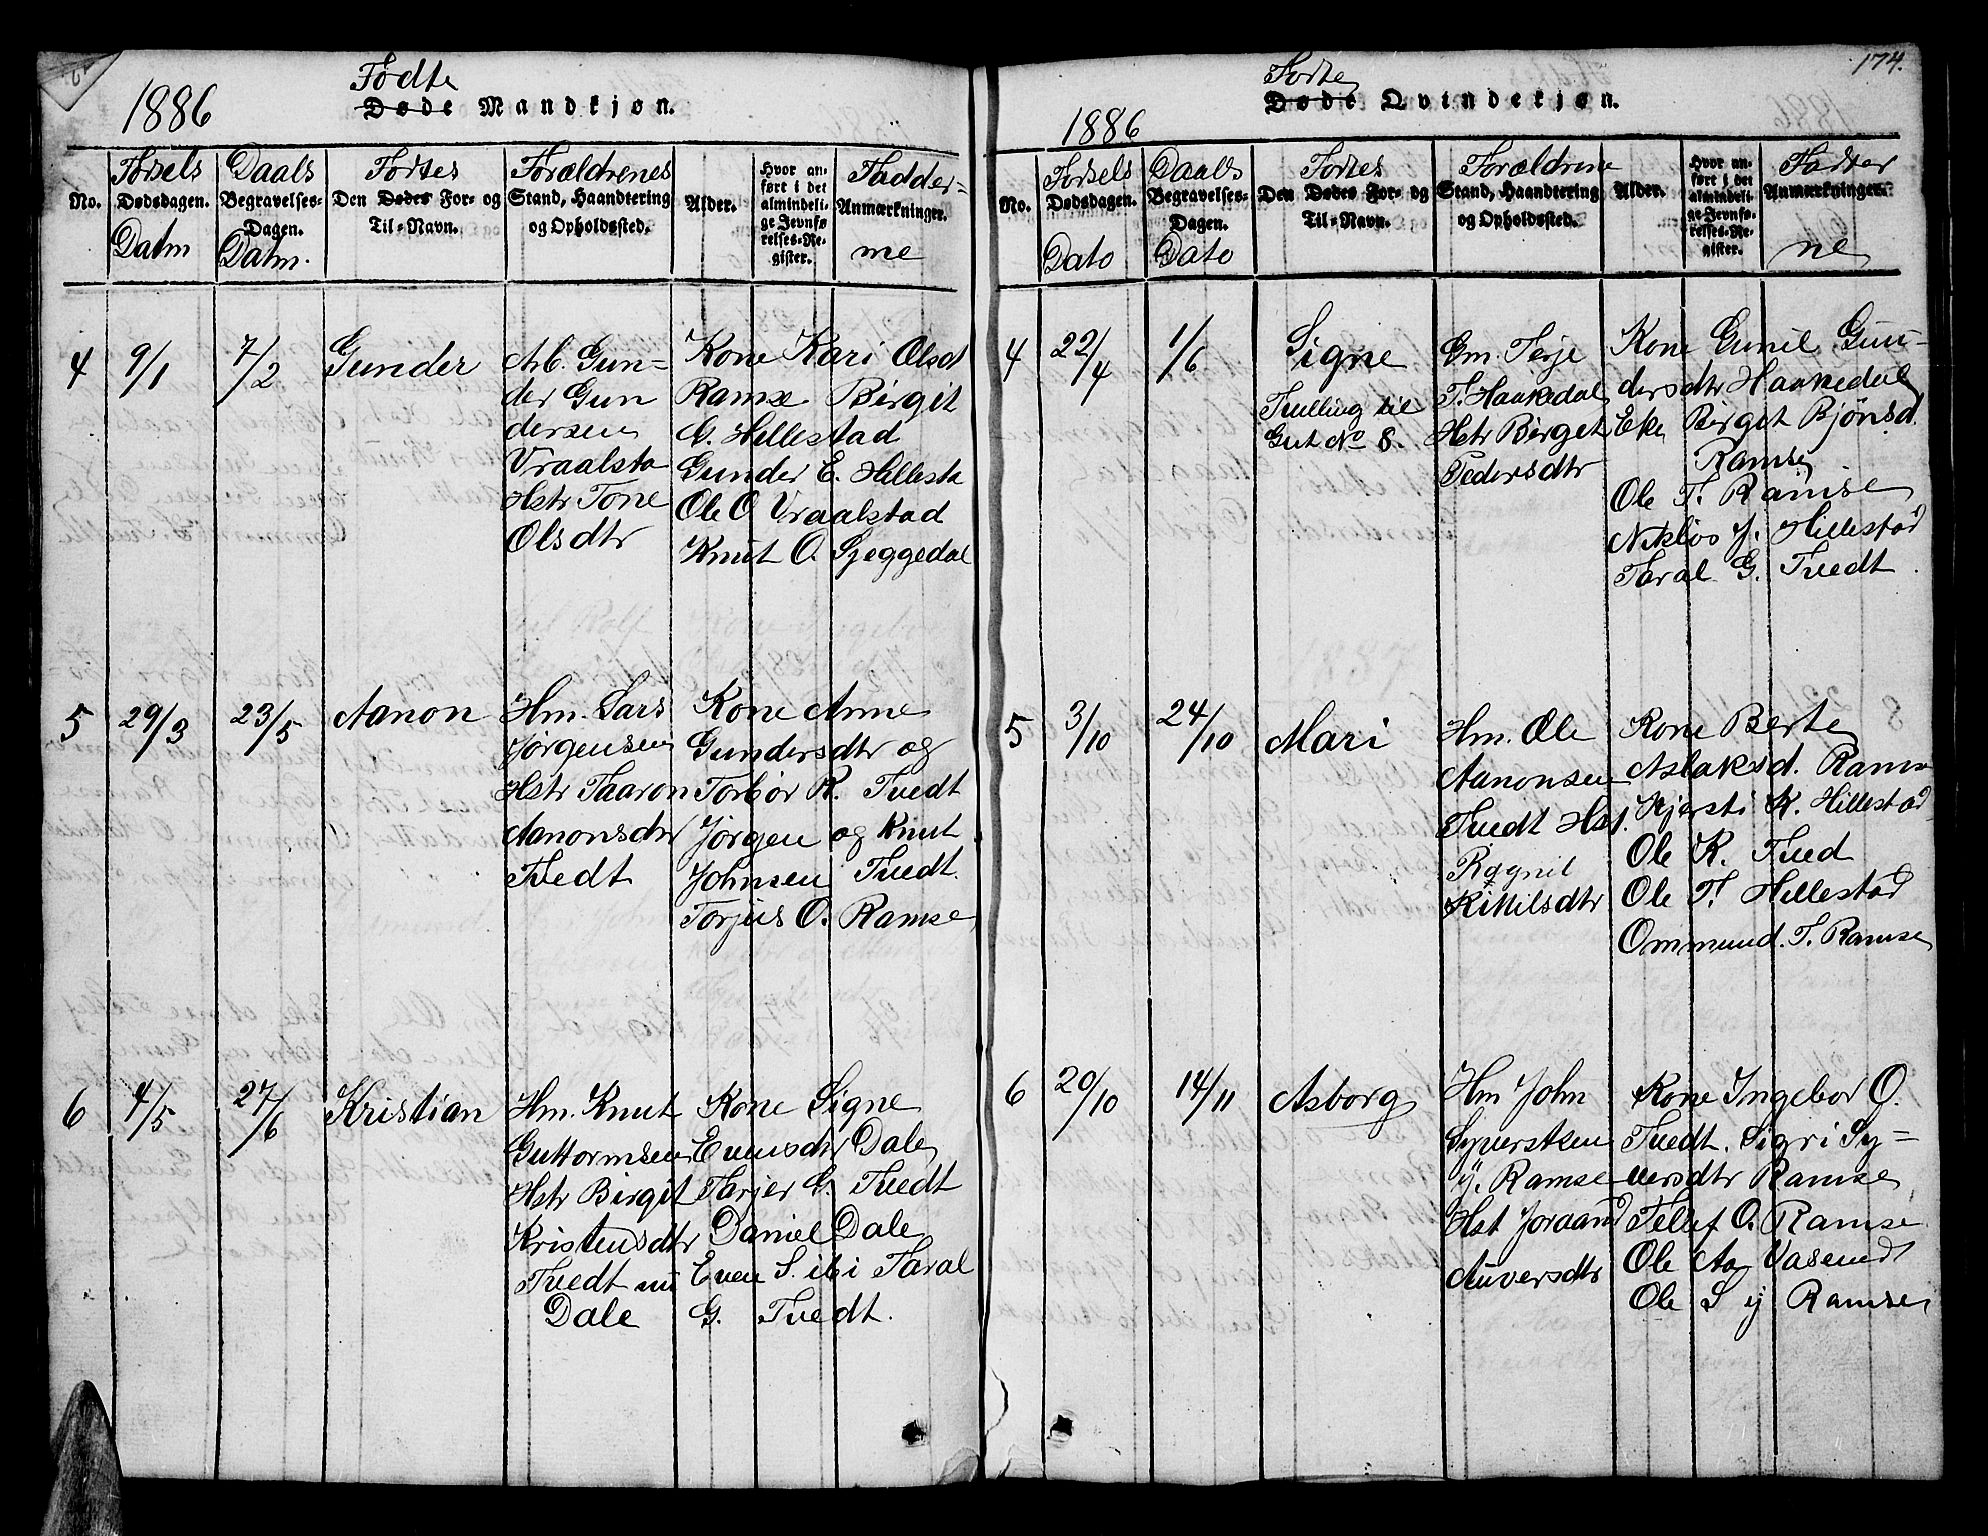 174.
1886
Fødte
Døde Mandkjøn.
No.
Fødsels
Dødsdagen.
Datm
Daabs
Begravelses-
Dagen.
Datm.
Fødtes
Den Dødes For- og
Til-Navn.
Forældrenes
Stand, Haandtering
og Opholdssted.
Alder.
Hvor an-
ført i det
almindeli-
ge Jevnfø
relses-Re-
gister.
Fadder-
Anmærkninger.
ne
4
9/1
7/2
Gunder
Arb. Gun-
der Gun
dersen
Vraalsta
Hstr Tone
Olsdtr
Kone Kari Olsd
Ramse Birgit
G. Hillestad
Gunder E. Hillesta
Ole O Vraalstad
Knut O. Sjeggedal
5
29/3
23/5
Aanon
Hm. Lars
Jørgensen
Hstr Taaron
Aanonsdtr
Tvedt
Kone Anne
Gundersdtr og
Torbør K. Tvedt
Jørgen og Knut
Johnsen Tvedt.
Torjus O. Ramse
6
4/5
27/6
Kristian
Hm. Knut
Guttormsen
Hstr Birgit
Kristensdtr
Tvedt nu
Dale
Kone Signe
Evensdtr Dale
Tarjer G. Tvedt
Daniel Dale
Even S. ibi Taral
G. Tvedt.
1886
Fødte
Døde Qvindekjøn.
No.
Fødsels
Dødsdagen.
Dato
Daabs
Begravelses-
Dagen.
Dato
Fødtes
Den Dødes For- og
Til-Navn.
Forældrene
Stand, Haandtering
og Opholdssted.
Alder.
Hvor an-
ført i det
almindeli-
ge Jevnfø-
relses-Re-
gister.
Fadder
Anmærkninger.
ne
4
22/4
1/6
Signe
Tvilling til
Gut No 8.
Gm Terje
T. Haakedal
Hstr Birget
Pedersdtr
Kone Gunil Gun-
dersdtr Haakedal
Eke Birget Bjönsd.
Ramse
Ole T. Ramse
Niklos J. Hillestad
Taral G. Tvedt
5
3/10
24/10
Mari
Hm. Ole
Aanonsen
Tvedt Hst.
Ragnil
Kittilsdtr
Kone Berte
Aslaksd. Rams
Kjersti K. Hillestad
Ole K. Tved
Ole T. Hillestad
Ommund. T. Ramse
6
20/10
14/11
Asborg
Hm John
Syverstsen
y. Ramse
Hst Joraand
Auversdtr
Kone Ingebor O.
Tvedt. Sigri Sy-
versdtr Ramse
Tellef O. Ramse
Ole Aa Vasend
Ole S y Ramse